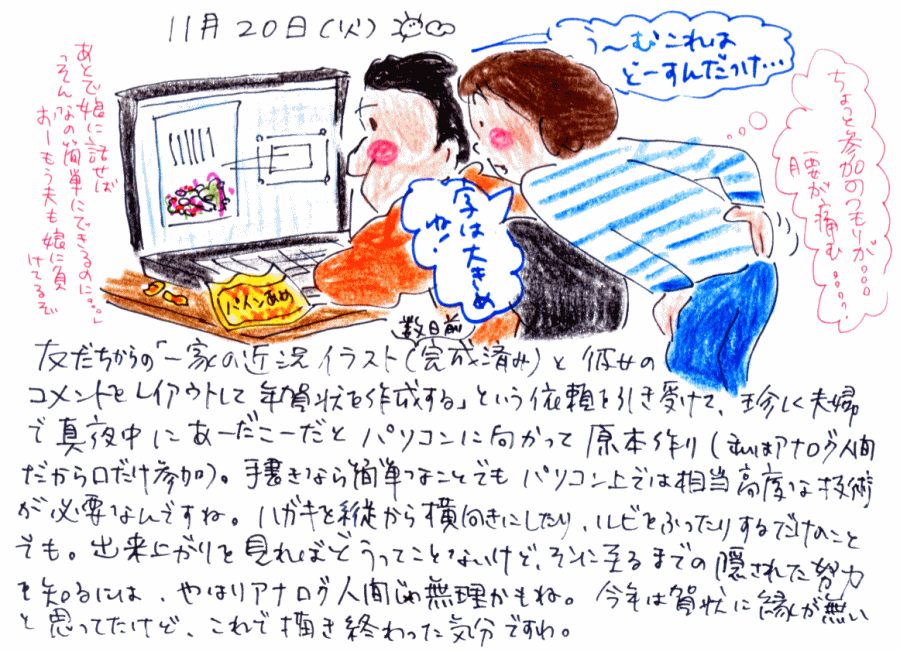 11月20日(火)
う〜むこれは
どーすんだっけ…
ちょっと参加のつもりが…
腰が痛む……
あとで娘に話せば
「そんなの簡単にできるのに…」
おーもう夫も娘に負
けてるぞ
字は大きめ
ね!
パインあめ
数日前
友だちからの「一家の近況イラスト(完成済み)と彼女の
コメントをレイアウトして年賀状を作成する」という依頼を引き受けて、珍しく夫婦
で真夜中にあーだこーだとパソコンに向かって原本作り(私はアナログ人間
だから口だけ参加)。手書きなら簡単なことでもパソコン上では相当高度な技術
が必要なんですね。ハガキを縦から横向きにしたり、ルビをふったりするだけのこと
でも。出来上がりを見ればどうってことないけど、そこに至るまでの隠された努力
を知るには、やはりアナログ人間じゃ無理かもね。今年は賀状に縁が無い
と思ってたけど、これで描き終わった気分ですわ。